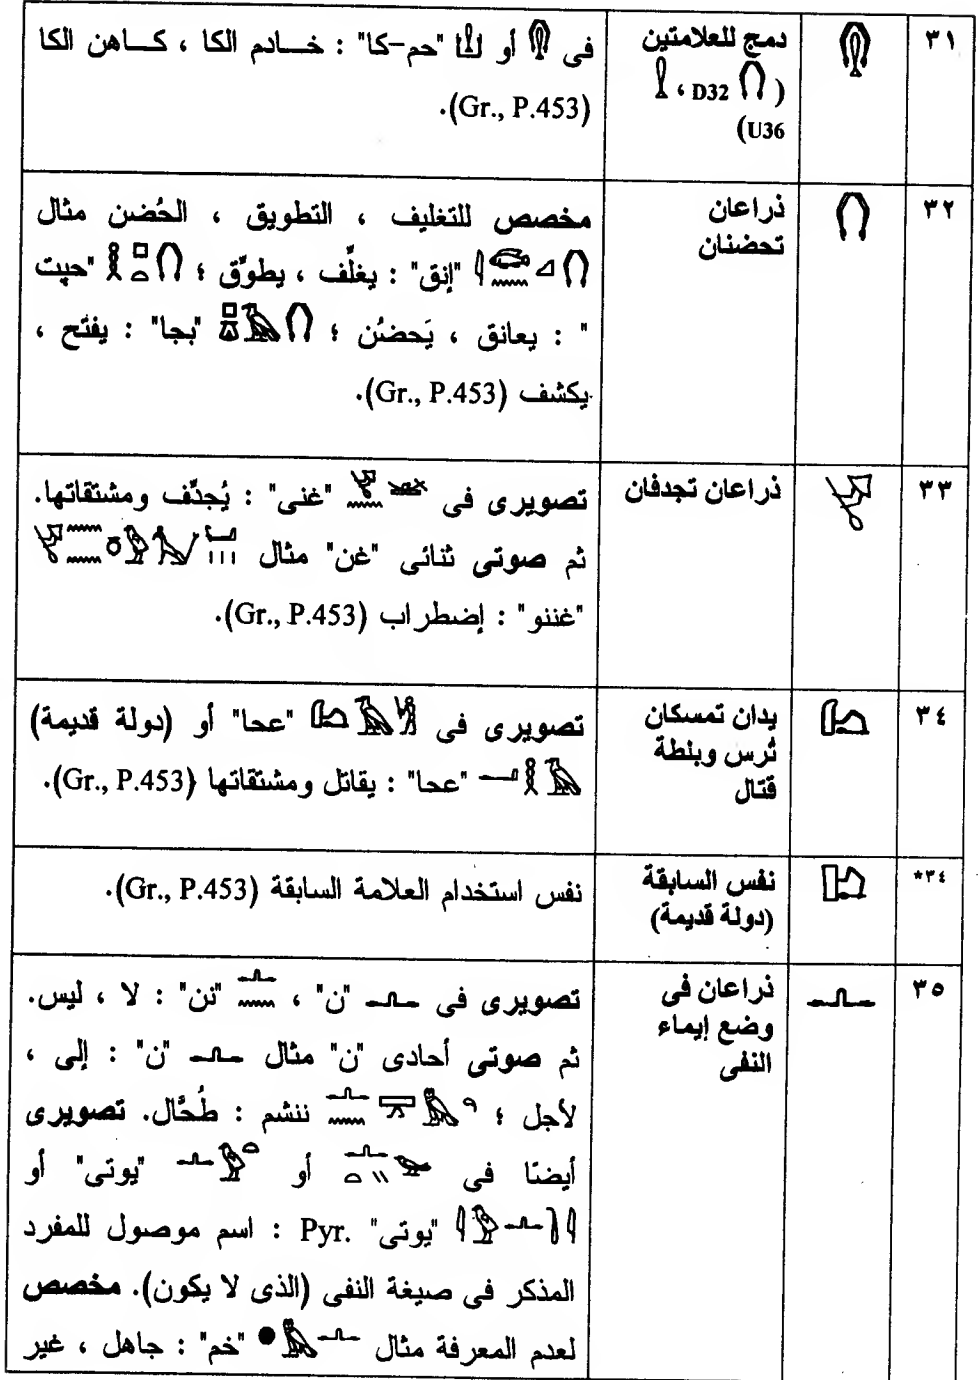 ٣١
دمج للعلامتين
( 𓂘 D32 ، 𓍛
U36)
فى 𓂙 أو 𓂓𓍛 "حم-كا" : خادم الكا ، كاهن الكا
(Gr., P.453).
٣٢
ذراعان
تحضنان
مخصص للتغليف ، التطويق ، الحُضن مثال
"إنق" : يغلِّف ، يطوِّق ؛ "حپت
" : يعانق ، يَحضُن ؛ "پجا" : يفتح ،
يكشف (Gr., P.453).
٣٣
ذراعان تجدفان
تصويرى فى "غنى" : يُجدِّف ومشتقاتها.
ثم صوتى ثنائى "غن" مثال
"غننو" : إضطراب (Gr., P.453).
٣٤
يدان تمسكان
تُرس وبلطة
قتال
تصويرى فى "عحا" أو (دولة قديمة)
"عحا" : يقاتل ومشتقاتها (Gr., P.453).
٣٤*
نفس السابقة
(دولة قديمة)
نفس استخدام العلامة السابقة (Gr., P.453).
٣٥
ذراعان فى
وضع إيماء
النفى
تصويرى فى 𓂜 "ن" ، 𓂜𓈖 "نن" : لا ، ليس.
ثم صوتى أحادى "ن" مثال 𓂜 "ن" : إلى ،
لأجل ؛ ننشم : طُحَّال. تصويرى
أيضًا فى أو "يوتى" أو
"يوتى" Pyr. : اسم موصول للمفرد
المذكر فى صيغة النفى (الذى لا يكون). مخصص
لعدم المعرفة مثال "خم" : جاهل ، غير